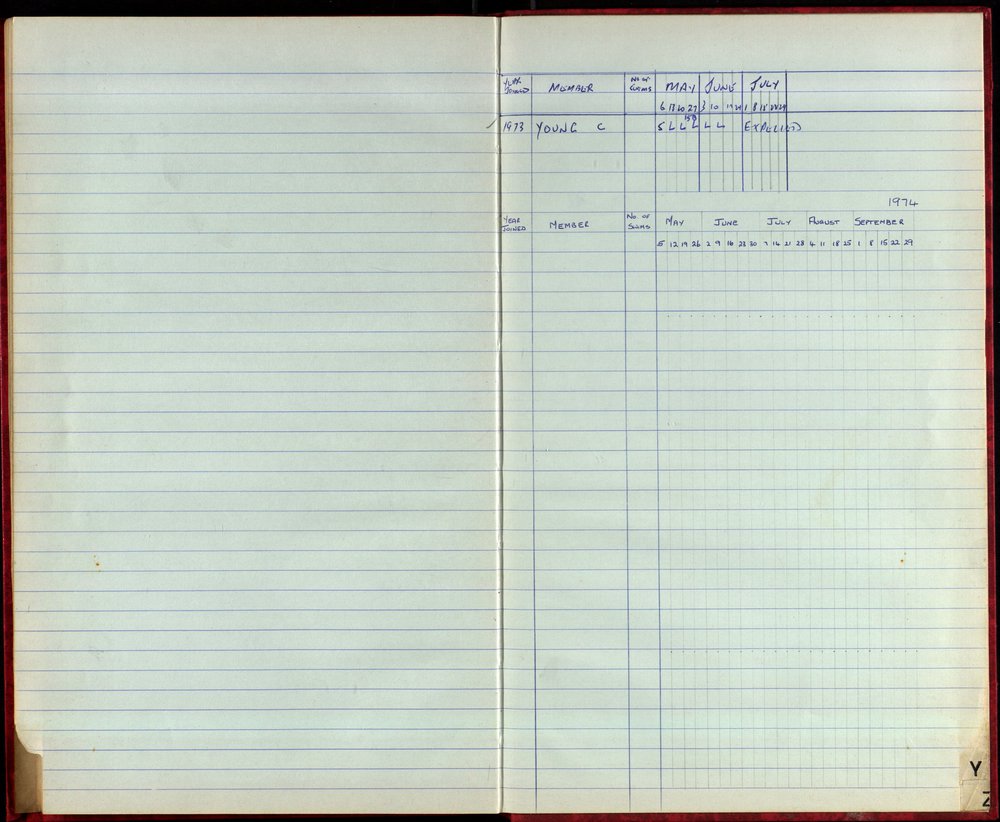 YEAR JOINED MEMBER No OF SWIMS MAY JUNE JULY
6 13 20 27 3 10 17 24 1 8 15 22 29
1973 YOUNG C 5 L L L L L EXPELLED
1974
YEAR JOINED MEMBER No OF SWIMS MAY JUNE JULY AUGUST SEPTEMBER
5 12 19 26 2 9 16 23 30 7 14 21 28 4 11 18 25 1 8 15 22 29
Y
Z